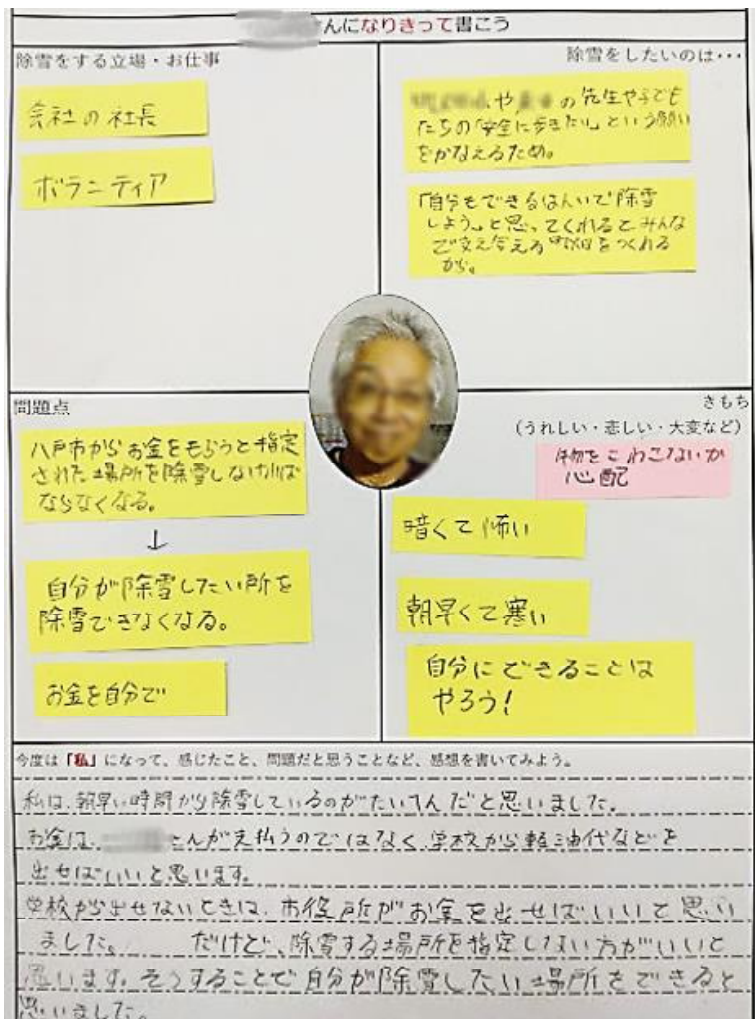 さんになりきって書こう
除雪をする立場・お仕事
会社の社長
ボランティア
除雪をしたいのは・・・
や の先生や子ども
たちの「安全に歩きたい」という願い
をかなえるため。
「自分もできるはんいで除雪
しよう。」と思ってくれるとみんな
で支え合える町をつくれる
から。
問題点
八戸市からお金をもらうと指定
された場所を除雪しなければ
ならなくなる。
↓
自分が除雪したい所を
除雪できなくなる。
お金を自分で
きもち
(うれしい・悲しい・大変など)
物をこわさないか
心配
暗くて怖い
朝早くて寒い
自分にできることは
やろう!
今度は「私」になって、感じたこと、問題だと思うことなど、感想を書いてみよう。
私は、朝早い時間から除雪しているのがたいへんだと思いました。
お金は、 さんが支払うのではなく、学校から軽油代などを
出せばいいと思います。
学校が出せないときは、市役所がお金を出せばいいと思い
ました。 だけど、除雪する場所を指定しない方がいいと
思います。そうすることで自分が除雪したい場所をできると
思いました。